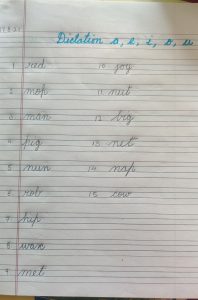 Dictation a, e, i, o, u
1 red
2 mop
3 man
4 pig
5 nun
6 rob
7 hip
8 wax
9 met
10 joy
11 nut
12 big
13 net
14 nap
15 cow